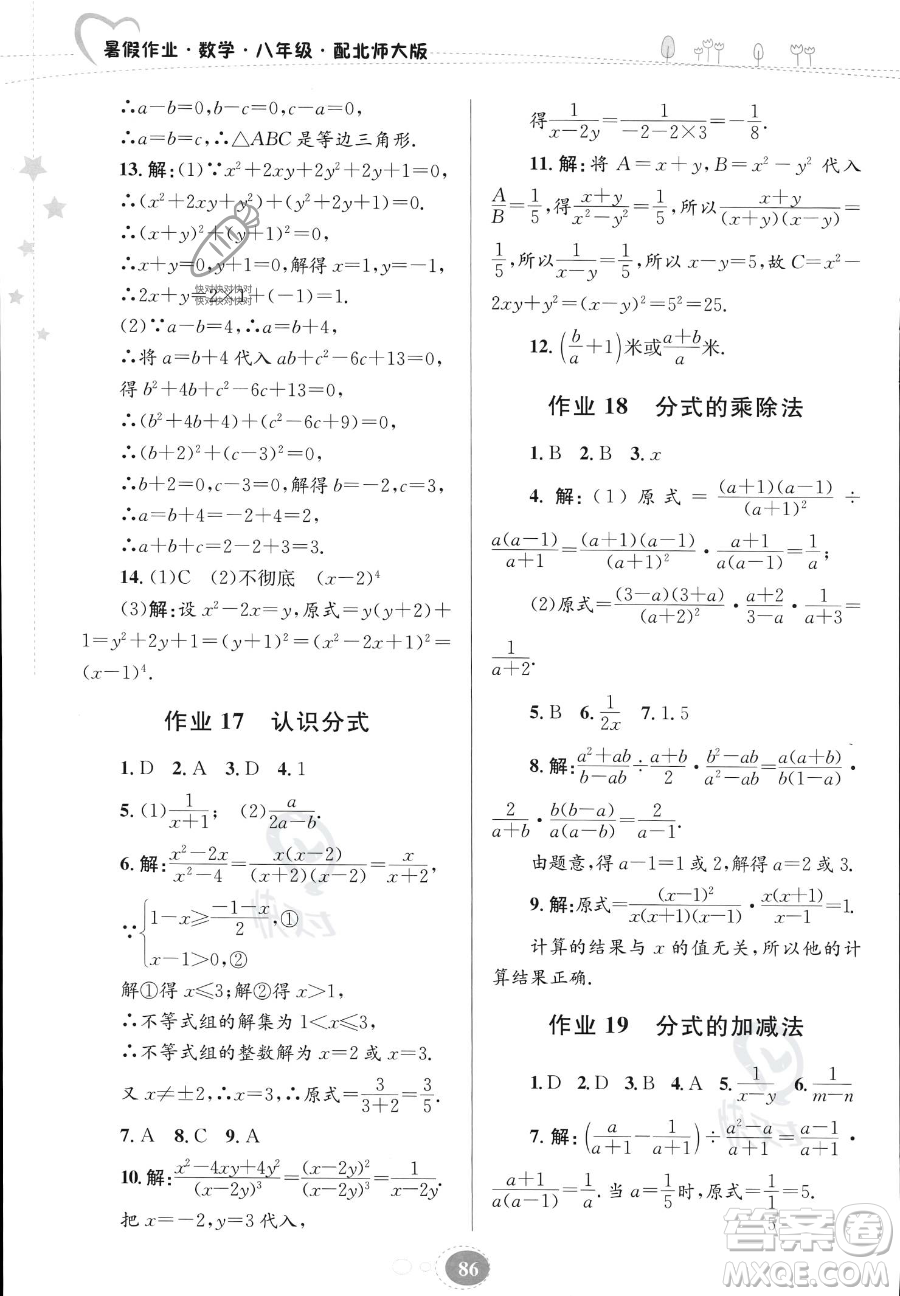 暑假作业·数学·八年级·配北师大版
∴a－b=0,b－c=0,a－c=0,
∴a=b=c,∴△ABC 是等边三角形.
13. 解:(1)∵x²+2xy+2y²+2y+1=0,
∴(x²+2xy+y²)+(y²+2y+1)=0.
∴(x+y)²+(y+1)²=0.
∴x+y=0,y+1=0,解得 x=1,y=－1,
∴2x+y=2×1+(－1)=1.
快对快对快对
快对快对快对
(2)∵a－b=4,∴a=b+4,
∴将 a=b+4 代入 ab+c²－6c+13=0,
得 b²+4b+c²－6c+13=0,
∴(b²+4b+4)+(c²－6c+9)=0,
∴(b+2)²+(c－3)²=0,
∴b+2=0,c－3=0,解得 b=－2,c=3,
∴a=b+4=－2+4=2,
∴a+b+c=2－2+3=3.
14. (1)C (2)不彻底 (x－2)⁴
(3)解:设 x²－2x=y,原式=y(y+2)+
1=y²+2y+1=(y+1)²=(x²－2x+1)²=
(x－1)⁴.
作业 17 认识分式
1. D 2. A 3. D 4. 1
5. (1) 1/(x+1); (2) a/(2a－b).
6. 解: (x²－2x)/(x²－4)=x(x－2)/((x+2)(x－2))=x/(x+2),
∵{1－x≥(－1－x)/2,①
x－1>0,②
解①得 x≤3;解②得 x>1,
∴不等式组的解集为 1<x≤3,
∴不等式组的整数解为 x=2 或 x=3.
又 x≠±2,∴x=3,∴原式=3/(3+2)=3/5.
7. A 8. C 9. A
10. 解: (x²－4xy+4y²)/(x－2y)³=(x－2y)²/(x－2y)³=1/(x－2y),
把 x=－2,y=3 代入,
得 1/(x－2y)=1/(－2－2×3)=－1/8.
11. 解:将 A=x+y,B=x²－y² 代入
A/B=1/5,得(x+y)/(x²－y²)=1/5,所以(x+y)/((x+y)(x－y))=
1/5,所以1/(x－y)=1/5,所以 x－y=5,故 C=x²－
2xy+y²=(x－y)²=5²=25.
12. (b/a+1)米或(a+b)/a米.
作业 18 分式的乘除法
1. B 2. B 3. x
4. 解:(1)原式=(a+1)(a－1)/(a+1)²÷
a(a－1)/(a+1)=(a+1)(a－1)/(a+1)²·(a+1)/(a(a－1))=1/a;
(2)原式=(3－a)(3+a)/(a+2)²·(a+2)/(3－a)·1/(3+a)=
1/(a+2).
5. B 6. 1/(2x) 7. 1.5
8. 解: (a²+ab)/(b－ab)÷(a+b)/2·(b²－ab)/(a²－ab)=a(a+b)/(b(1－a))·
2/(a+b)·b(b－a)/(a(a－b))=2/(a－1).
由题意,得 a－1=1 或 2,解得 a=2 或 3.
9. 解:原式=(x－1)²/(x(x+1)(x－1))·x(x+1)/(x－1)=1.
计算的结果与 x 的值无关,所以他的计
算结果正确.
作业 19 分式的加减法
1. D 2. D 3. B 4. A 5. 1/(x－y) 6. 1/(m－n)
7. 解: (a/(a+1)－1/(a+1))÷(a²－a)/(a+1)=(a－1)/(a+1)·
(a+1)/(a(a－1))=1/a.当 a=1/5时,原式=1/(1/5)=5.
86
答案卷
MXQE.COM